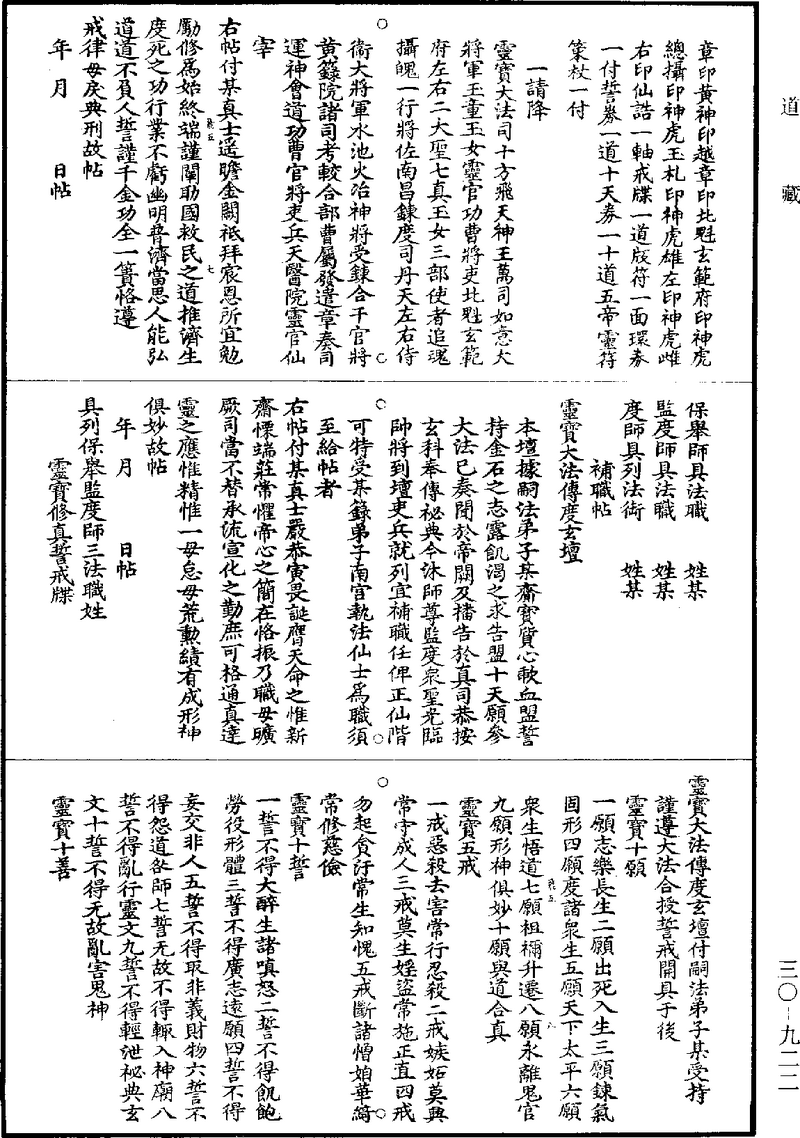 道藏
章印黄神印越章印北魁玄範府印神虎
總攝印神虎玉札印神虎雄左印神虎雌
右印仙誥一軸戒牒一道版符一面環券
一付誓券一道十天券一十道五帝靈符
策杖一付
一請降
靈寶大法司十方飛天神王萬司如意大
將軍玉童玉女靈官功曹將吏北魁玄範
府左右二大聖七真玉女三部使者追魂
攝魄一行將佐南昌鍊度司丹天左右侍
衞大將軍水池火沼神將受鍊合干官將
黄籙院諸司考較合部曹屬發遣章奏司
運神會道功曹官將吏兵天醫院靈官仙
宰
右帖付某真士遥瞻金闕祇拜宸恩所宜勉
勵修爲始終端謹闡助國救民之道推濟生
度死之功行業不虧幽明普濟當思人能弘
道道不負人誓謹千金功全一簣恪遵
戒律毋戾典刑故帖
年 月 日帖
保舉師具法職 姓某
監度師具法職 姓某
度師具列法術 姓某
補職帖
靈寶大法傳度玄壇
本壇據嗣法弟子某齋寶質心歃血盟誓
持金石之志露飢渴之求告盟十天願參
大法已奏聞於帝闕及播告於真司恭按
玄科奉傳秘典今沐師尊監度衆聖光臨
帥將到壇吏兵就列宜補職任俾正仙階
可特受某籙弟子南宫執法仙士爲職須
至給帖者
右帖付某真士嚴恭寅畏誕膺天命之惟新
齋慄端莊常懼帝心之簡在恪振乃職毋曠
厥司當不替承流宣化之勤庶可格通真達
靈之應惟精惟一毋怠毋荒勲績有成形神
俱妙故帖
年 月 日帖
具列保舉監度師三法職姓
靈寶修真誓戒牒
靈寶大法傳度玄壇付嗣法弟子某受持
謹遵大法合授誓戒開具于後
靈寶十願
一願志樂長生二願出死入生三願鍊氣
固形四願度諸衆生五願天下太平六願
衆生悟道七願祖禰升遷八願永離鬼官
九願形神俱妙十願與道合真
靈寶五戒
一戒惡殺去害常行忍殺二戒嫉妬莫興
常守成人三戒莫生婬盜常施正直四戒
勿起貪汙常生知愧五戒斷諸憎妬華綺
常修慈儉
靈寶十誓
一誓不得大醉生諸嗔怒二誓不得飢飽
勞役形體三誓不得廣志遠願四誓不得
妄交非人五誓不得取非義財物六誓不
得怨道咎師七誓无故不得輙入神廟八
誓不得亂行靈文九誓不得輕泄祕典玄
文十誓不得无故亂害鬼神
靈寶十善
三〇-九二二